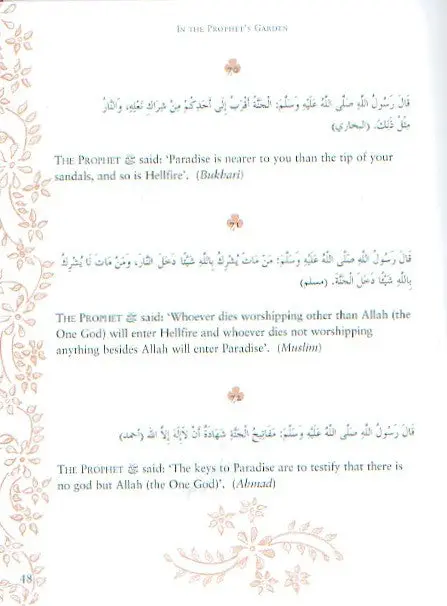 IN THE PROPHET'S GARDEN
70
قَالَ رَسُولُ اللَّهِ صَلَّى اللَّهُ عَلَيْهِ وَسَلَّمَ: الْجَنَّةُ أَقْرَبُ إِلَى أَحَدِكُمْ مِنْ شِرَاكِ نَعْلِهِ، وَالنَّارُ
مِثْلُ ذَلِكَ. (البخاري)
THE PROPHET ﷺ said: 'Paradise is nearer to you than the tip of your
sandals, and so is Hellfire'. (Bukhari)
71
قَالَ رَسُولُ اللَّهِ صَلَّى اللَّهُ عَلَيْهِ وَسَلَّمَ: مَنْ مَاتَ يُشْرِكُ بِاللَّهِ شَيْئًا دَخَلَ النَّارَ، وَمَنْ مَاتَ لَا يُشْرِكُ
بِاللَّهِ شَيْئًا دَخَلَ الْجَنَّةَ. (مسلم)
THE PROPHET ﷺ said: 'Whoever dies worshipping other than Allah (the
One God) will enter Hellfire and whoever dies not worshipping
anything besides Allah will enter Paradise'. (Muslim)
قَالَ رَسُولُ اللَّهِ صَلَّى اللَّهُ عَلَيْهِ وَسَلَّمَ: مَفَاتِيحُ الْجَنَّةِ شَهَادَةُ أَنْ لَاإِلَهَ إِلاَّ الله (أحمد)
THE PROPHET ﷺ said: 'The keys to Paradise are to testify that there is
no god but Allah (the One God)'. (Ahmad)
48